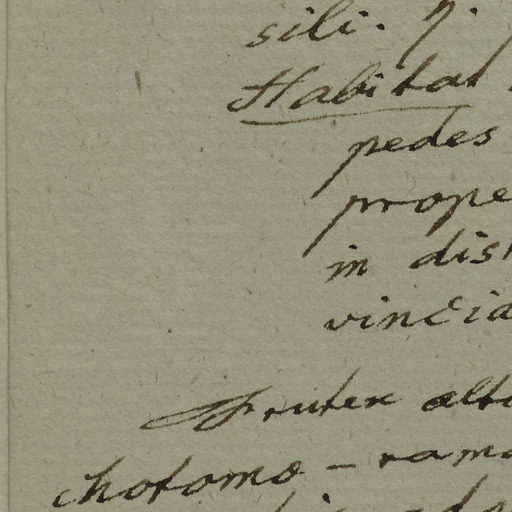 sili. ♄.
Habitat
pedes
prope
in dist
vincia
Frutex alt
chotomo-ramo